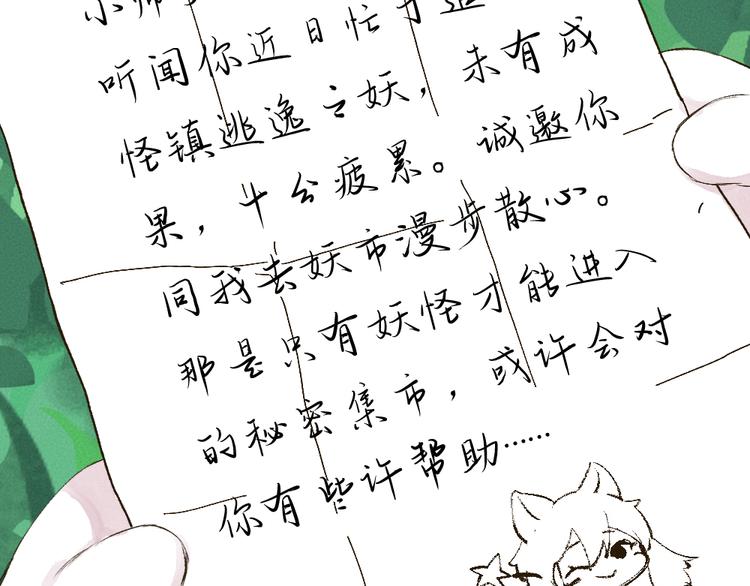 小师
听闻你近日忙于追
怪镇逃逸之妖，未有成
果，十分疲累。诚邀你
同我去妖市漫步散心。
那是只有妖怪才能进入
的秘密集市，或许会对
你有些许帮助……